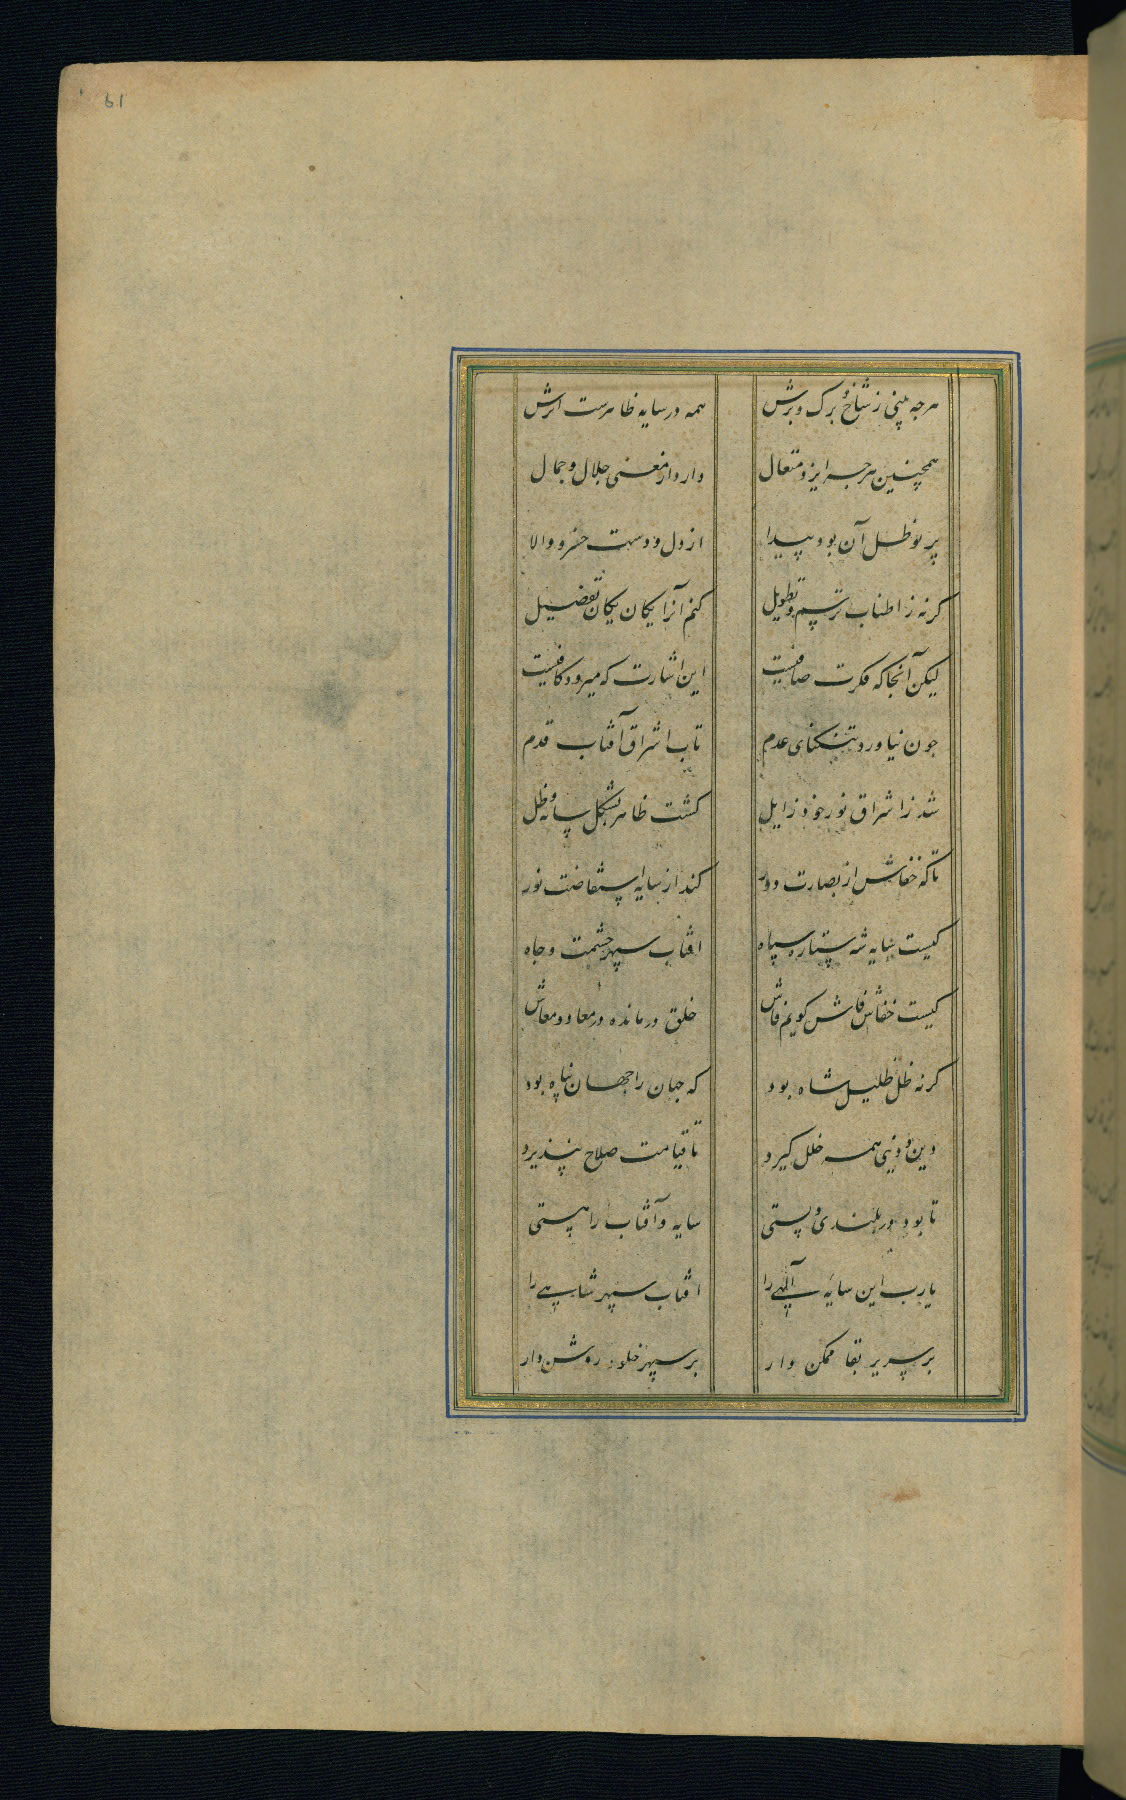 61
هرچه بینی ز شاخ و برک و برش همه در سایه ظاهرست اثرش
همچنین هرچه ایزد متعال دارد از معنی جلال و جمال
پرتو ظل آن بود پیدا از دل و دست خسرو والا
کرنه ز اطناب ترسم و تطویل کنم آنرا یکان یکان تفصیل
لیکن آنجا که فکرت صافیست این اشارت که میرود کافیست
چون نیاورد تنکنای عدم تاب اشراق آفتاب قدم
شد ز اشراق نور خود زایل کشت ظاهر بشکل سایه و ظل
تا که خفاش از بصارت دور کند از سایه استفاضت نور
کیست سایه شه ستاره سپاه افتاب سپهر حشمت و جاه
کیست خفاش فاش کویم فاش خلق درمانده در معاد و معاش
کرنه ظل ظلیل شاه بود که جهان را جهان پناه بود
دین و دنیی همه خلل کیرد تا قیامت صلاح نپذیرد
تا بود در بلندی و پستی سایه و آفتاب را هستی
یا رب این سایه آلهی را افتاب سپهر شاهی را
بر سریر بقا ممکن دار بر سپهر خلود روشن دار